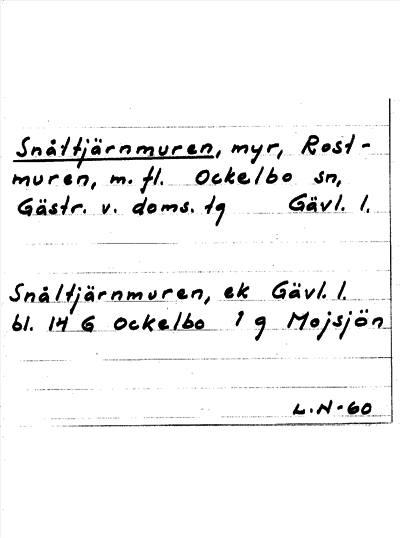 Snåltjärnmuren, myr, Rost-
muren, m. fl. Ockelbo sn,
Gästr. v. doms. tg Gävl. l.
Snåltjärnmuren, ek Gävl. l.
bl. 14 G Ockelbo 1 g Mojsjön
L.N-60